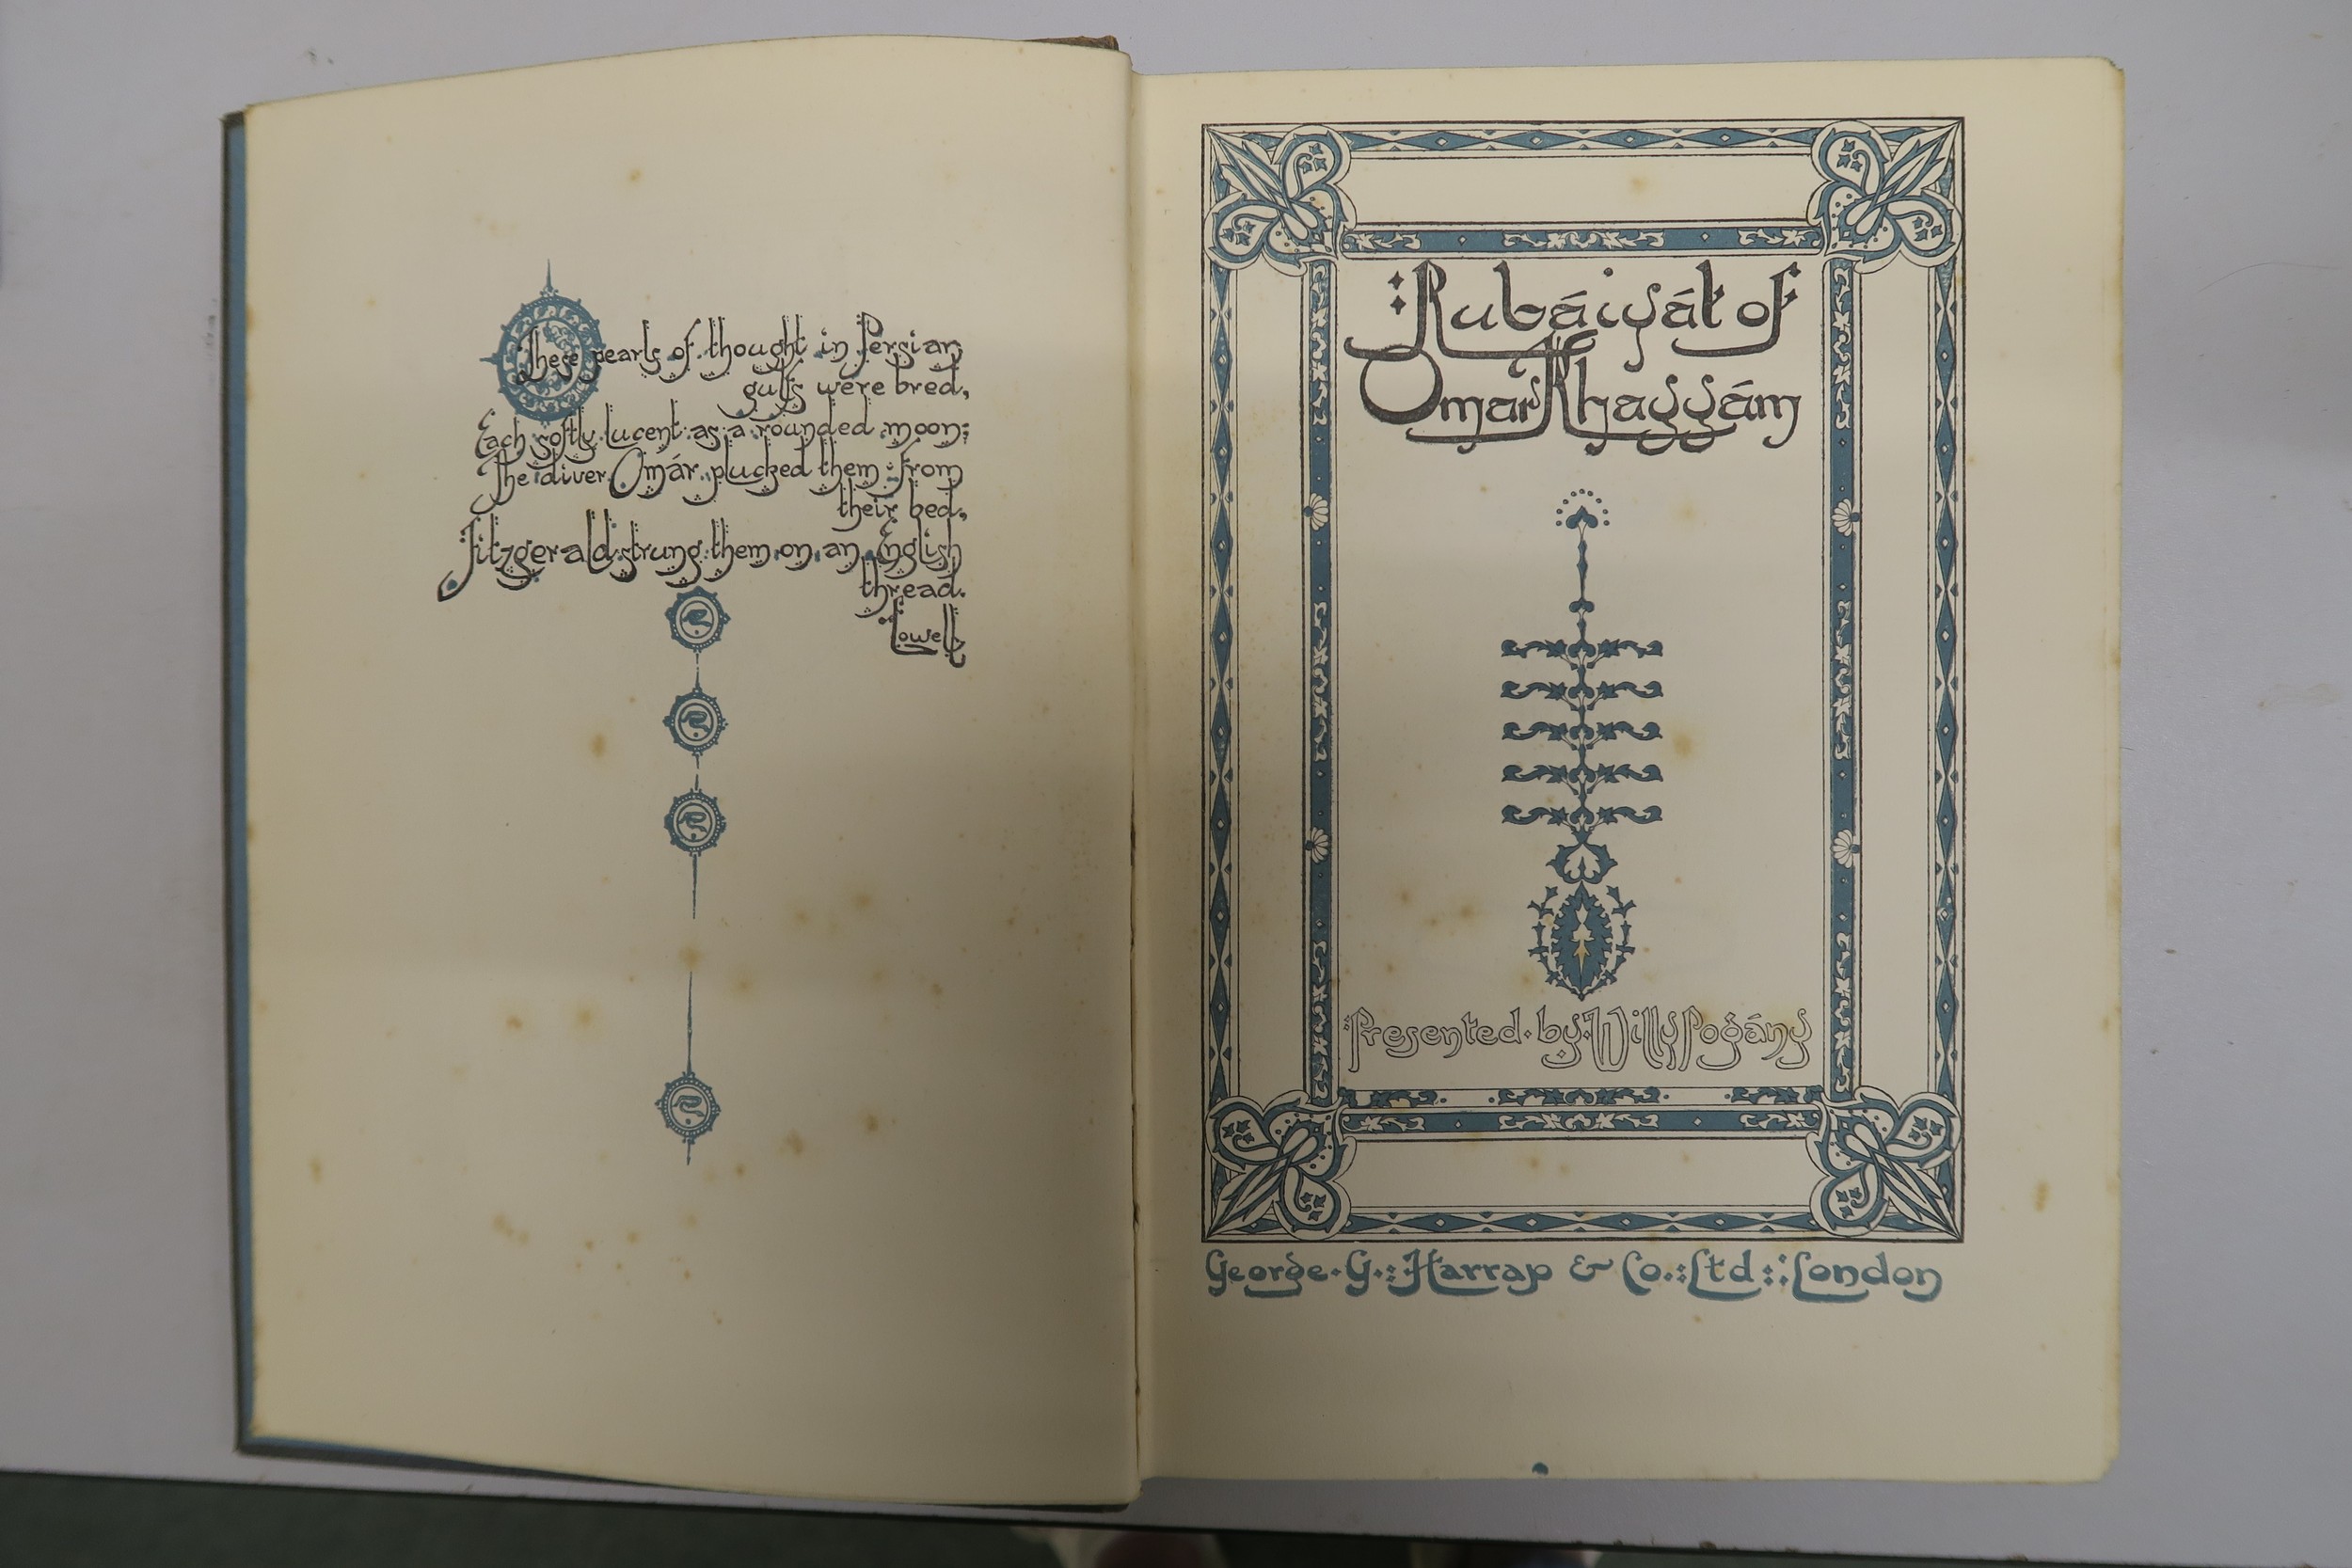 These pearls of thought in Persian
gulfs were bred,
Each softly lucent as a rounded moon;
The diver Omár plucked them from
their bed,
Fitzgerald strung them on an English
thread.
Lowell
Rubáiyát of
Omar Khayyám
Presented by Willy Pogány
George G. Harrap & Co. Ltd London